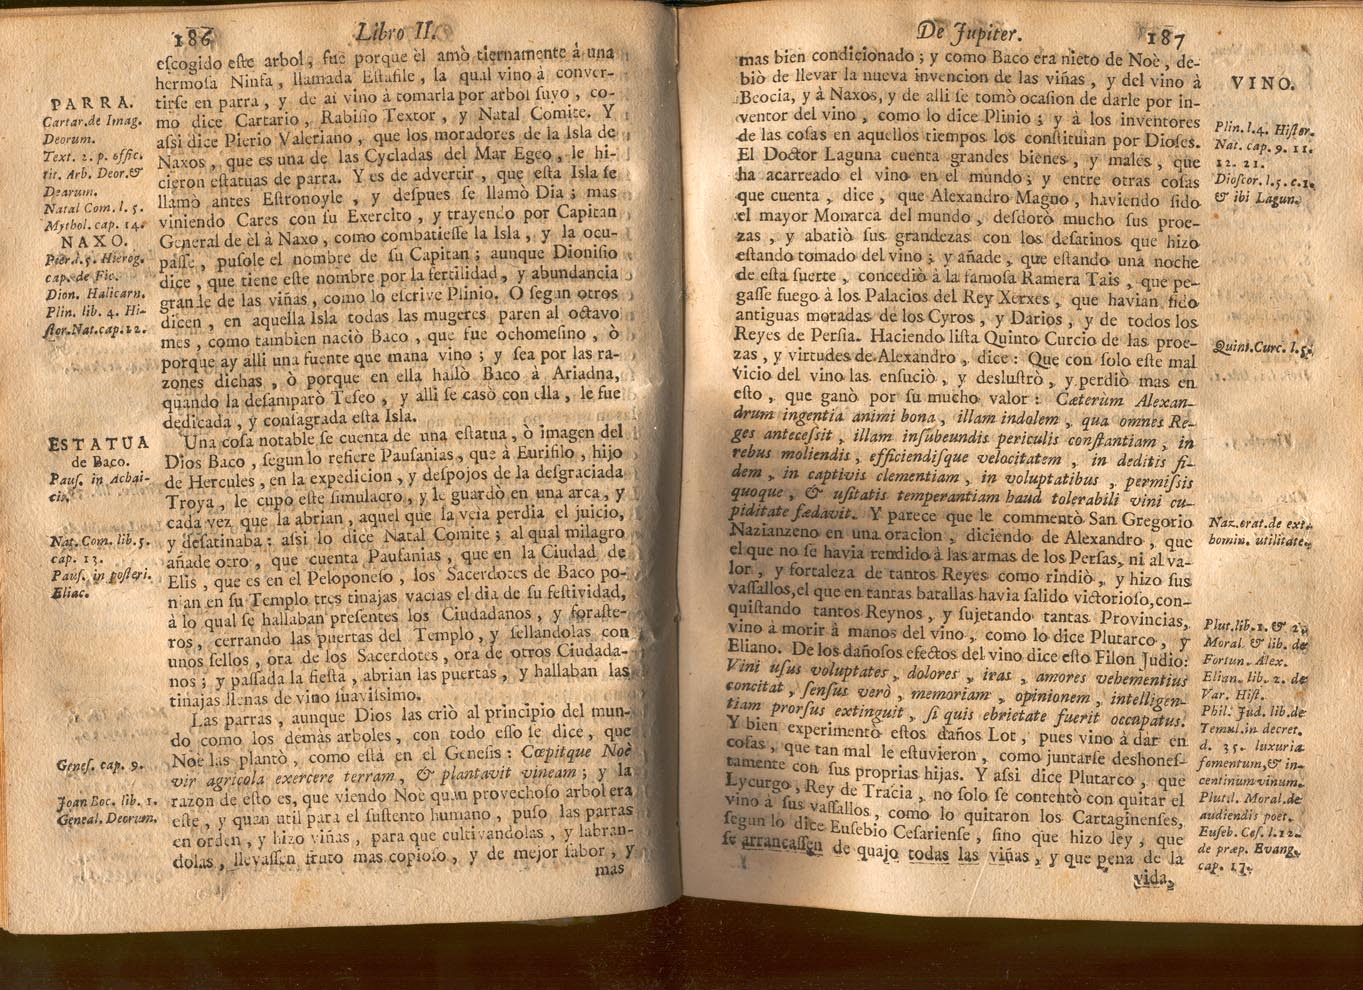 186 Libro II.
eſcogido eſte arbol, fue porque èl amò tiernamente à una
hermoſa Ninfa, llamada Eſtafile, la qual vino à conver-
tirſe en parra, y de aì vino à tomarla por arbol ſuyo, co-
mo dice Cartario, Rabiſio Textor, y Natal Comite. Y
aſsi dice Pierio Valeriano, que los moradores de la Isla de
Naxos, que es una de las Cycladas del Mar Egeo, le hi-
cieron eſtatuas de parra. Y es de advertir, que eſta Isla ſe
llamò antes Eſtronoyle, y deſpues ſe llamò Dia; mas
viniendo Cares con ſu Exercito, y trayendo por Capitan
General de èl à Naxo, como combatieſſe la Isla, y la ocu-
paſſe, puſole el nombre de ſu Capitan; aunque Dioniſio
dice, que tiene eſte nombre por la fertilidad, y abundancia
grande de las viñas, como lo eſcrive Plinio. O ſegun otros
dicen, en aquella Isla todas las mugeres paren al octavo
mes, como tambien naciò Baco, que fue ochomeſino, ò
porque ay alli una fuente que mana vino; y ſea por las ra-
zones dichas, ò porque en ella hallò Baco à Ariadna,
quando la deſamparò Teſeo, y alli ſe casò con ella, le fue
dedicada, y conſagrada eſta Isla.
Una coſa notable ſe cuenta de una eſtatua, ò imagen del
Dios Baco, ſegun lo refiere Pauſanias, que à Eurifilo, hijo
de Hercules, en la expedicion, y deſpojos de la deſgraciada
Troya, le cupo eſte ſimulacro, y le guardò en una arca, y
cada vez que la abrian, aquel que la veia perdia el juicio,
y deſatinaba: aſsi lo dice Natal Comite; al qual milagro
añade otro, que cuenta Pauſanias, que en la Ciudad de
Elis, que es en el Peloponeſo, los Sacerdotes de Baco po-
nian en ſu Templo tres tinajas vacias el dia de ſu feſtividad,
à lo qual ſe hallaban preſentes los Ciudadanos, y foraſte-
ros, cerrando las puertas del Templo, y ſellandolas con
unos ſellos, ora de los Sacerdotes, ora de otros Ciudada-
nos; y paſſada la fieſta, abrian las puertas, y hallaban las
tinajas llenas de vino ſuaviſsimo.
Las parras, aunque Dios las criò al principio del mun-
do como los demàs arboles, con todo eſſo ſe dice, que
Noè las plantò, como eſtà en el Geneſis: Cœpitque Noè
vir agricola exercere terram, & plantavit vineam; y la
razon de eſto es, que viendo Noè quàn provechoſo arbol era
eſte, y quàn util para el ſuſtento humano, puſo las parras
en orden, y hizo viñas, para que cultivandolas, y labran-
dolas, llevaſſen fruto mas copioſo, y de mejor ſabor, y
mas
PARRA.
Cartar. de Imag.
Deorum.
Text. 2. p. offic.
tit. Arb. Deor. &
Dearum.
Natal Com. l. 5.
Mythol. cap. 14.
NAXO.
Pier. l. 5. Hierog.
cap. de Fic.
Dion. Halicarn.
Plin. lib. 4. Hi-
ſtor. Nat. cap. 12.
ESTATUA
de Baco.
Pauſ. in Achai-
cis.
Nat. Com. lib. 5.
cap. 13.
Pauſ. in poſteri.
Eliac.
Geneſ. cap. 9.
Joan Boc. lib. 1.
Geneal. Deorum.
De Jupiter. 187
mas bien condicionado; y como Baco era nieto de Noè, de-
biò de llevar la nueva invencion de las viñas, y del vino à
Beocia, y à Naxos, y de alli ſe tomò ocaſion de darle por in-
ventor del vino, como lo dice Plinio; y à los inventores
de las coſas en aquellos tiempos los conſtituìan por Dioſes.
El Doctor Laguna cuenta grandes bienes, y males, que
ha acarreado el vino en el mundo; y entre otras coſas
que cuenta, dice, que Alexandro Magno, haviendo ſido
el mayor Monarca del mundo, deſdorò mucho ſus proe-
zas, y abatiò ſus grandezas con los deſatinos que hizo
eſtando tomado del vino; y añade, que eſtando una noche
de eſta ſuerte, concediò à la famoſa Ramera Tais, que pe-
gaſſe fuego à los Palacios del Rey Xerxes, que havian ſido
antiguas moradas de los Cyros, y Darios, y de todos los
Reyes de Perſia. Haciendo liſta Quinto Curcio de las proe-
zas, y virtudes de Alexandro, dice: Que con ſolo eſte mal
vicio del vino las enſuciò, y desluſtrò, y perdiò mas en
eſto, que ganò por ſu mucho valor: Cæterum Alexan-
drum ingentia animi bona, illam indolem, qua omnes Re-
ges anteceſsit, illam inſubeundis periculis conſtantiam, in
rebus moliendis, efficiendiſque velocitatem, in deditis fi-
dem, in captivis clementiam, in voluptatibus, permiſsis
quoque, & uſitatis temperantiam haud tolerabili vini cu-
piditate fœdavit. Y parece que le commentò San Gregorio
Nazianzeno en una oracion, diciendo de Alexandro, que
el que no ſe havia rendido à las armas de los Perſas, ni al va-
lor, y fortaleza de tantos Reyes como rindiò, y hizo ſus
vaſſallos, el que en tantas batallas havia ſalido victorioſo, con-
quiſtando tantos Reynos, y ſujetando tantas Provincias,
vino à morir à manos del vino, como lo dice Plutarco, y
Eliano. De los dañoſos efectos del vino dice eſto Filon Judio:
Vini uſus voluptates, dolores, iras, amores vehementius
concitat, ſenſus verò, memoriam, opinionem, intelligen-
tiam prorſus extinguit, ſi quis ebrietate fuerit occupatus.
Y bien experimentò eſtos daños Lot, pues vino à dar en
coſas, que tan mal le eſtuvieron, como juntarſe deshoneſ-
tamente con ſus proprias hijas. Y aſsi dice Plutarco, que
Lycurgo, Rey de Tracia, no ſolo ſe contentò con quitar el
vino à ſus vaſſallos, como lo quitaron los Cartaginenſes,
ſegun lo dice Euſebio Ceſarienſe, ſino que hizo ley, que
ſe arrancaſſen de quajo todas las viñas, y que pena de la
vida,
VINO.
Plin. l. 4. Hiſtor.
Nat. cap. 9. 11.
12. 21.
Dioſcor. l. 5. c. 1.
& ibi Lagun.
Quint. Curc. l. 5.
Naz. orat. de ext.
homin. utilitate.
Plut. lib. 1. & 2.
Moral & lib. de
Fortun. Alex.
Elian. lib. 2. de
Var. Hiſt.
Phil. Jud. lib. de
Temul. in decret.
d. 35. luxuria
fomentum, & in-
centinum vinum.
Plutil. Moral. de
audiendis poet.
Euſeb. Ceſ. l. 12.
de præp. Evang.
cap. 17.